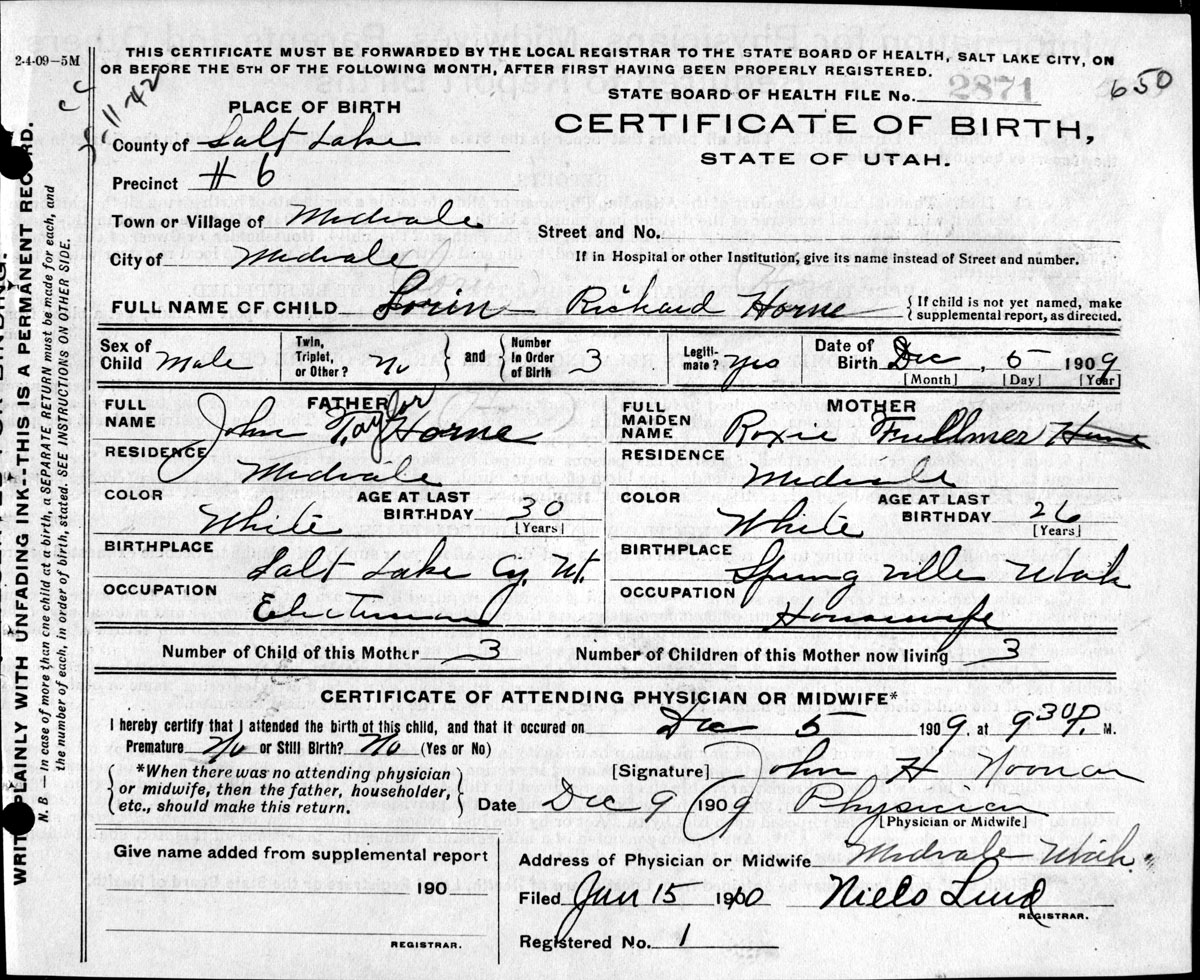 THIS CERTIFICATE MUST BE FORWARDED BY THE LOCAL REGISTRAR TO THE STATE BOARD OF HEALTH, SALT LAKE CITY, ON
OR BEFORE THE 5TH OF THE FOLLOWING MONTH, AFTER FIRST HAVING BEEN PROPERLY REGISTERED.
2-4-09—5M
STATE BOARD OF HEALTH FILE No. 2871
650
11-42
PLACE OF BIRTH
CERTIFICATE OF BIRTH,
STATE OF UTAH.
County of Salt Lake
Precinct # 6
Town or Village of Midvale
Street and No.
City of Midvale
If in Hospital or other Institution, give its name instead of Street and number.
FULL NAME OF CHILD Lorin Richard Horne
{If child is not yet named, make
supplemental report, as directed.
Sex of Child Male
Twin, Triplet, or Other? No } and { Number in Order of Birth 3
Legitimate? yes
Date of Birth Dec, 5 1909
[Month] [Day] [Year]
FATHER
FULL NAME John Taylor Horne
RESIDENCE Midvale
COLOR White
AGE AT LAST BIRTHDAY 30
[Years]
BIRTHPLACE Salt Lake Cy. Ut.
OCCUPATION Electrician
MOTHER
FULL MAIDEN NAME Roxie Fullmer Horne
RESIDENCE Midvale
COLOR White
AGE AT LAST BIRTHDAY 26
[Years]
BIRTHPLACE Springville Utah
OCCUPATION Housewife
Number of Child of this Mother 3
Number of Children of this Mother now living 3
CERTIFICATE OF ATTENDING PHYSICIAN OR MIDWIFE*
I hereby certify that I attended the birth of this child, and that it occured on Dec 5 1909, at 9 30 P. M.
Premature No or Still Birth? No (Yes or No)
{ *When there was no attending physician
or midwife, then the father, householder,
etc., should make this return. }
[Signature] John H Noonan
Date Dec 9 1909 Physician
[Physician or Midwife]
Give name added from supplemental report
190
REGISTRAR.
Address of Physician or Midwife Midvale Utah
Filed Jan 15 1910 Niels Lind
REGISTRAR.
Registered No. 1
PLAINLY WITH UNFADING INK—THIS IS A PERMANENT RECORD.
N. B.—In case of more than one child at a birth, a SEPARATE RETURN must be made for each, and
the number of each, in order of birth, stated. SEE INSTRUCTIONS ON OTHER SIDE.